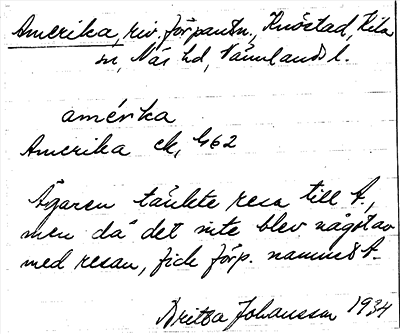 Amerika, riv. förpantn., Knöstad, Kila
sn, Näs hd, Värmlands l.
amérika
Amerika ek, 462
Ägaren tänkte resa till A.,
men då det inte blev något av
med resan, fick förp. namnet A.
Britta Johansson 1934